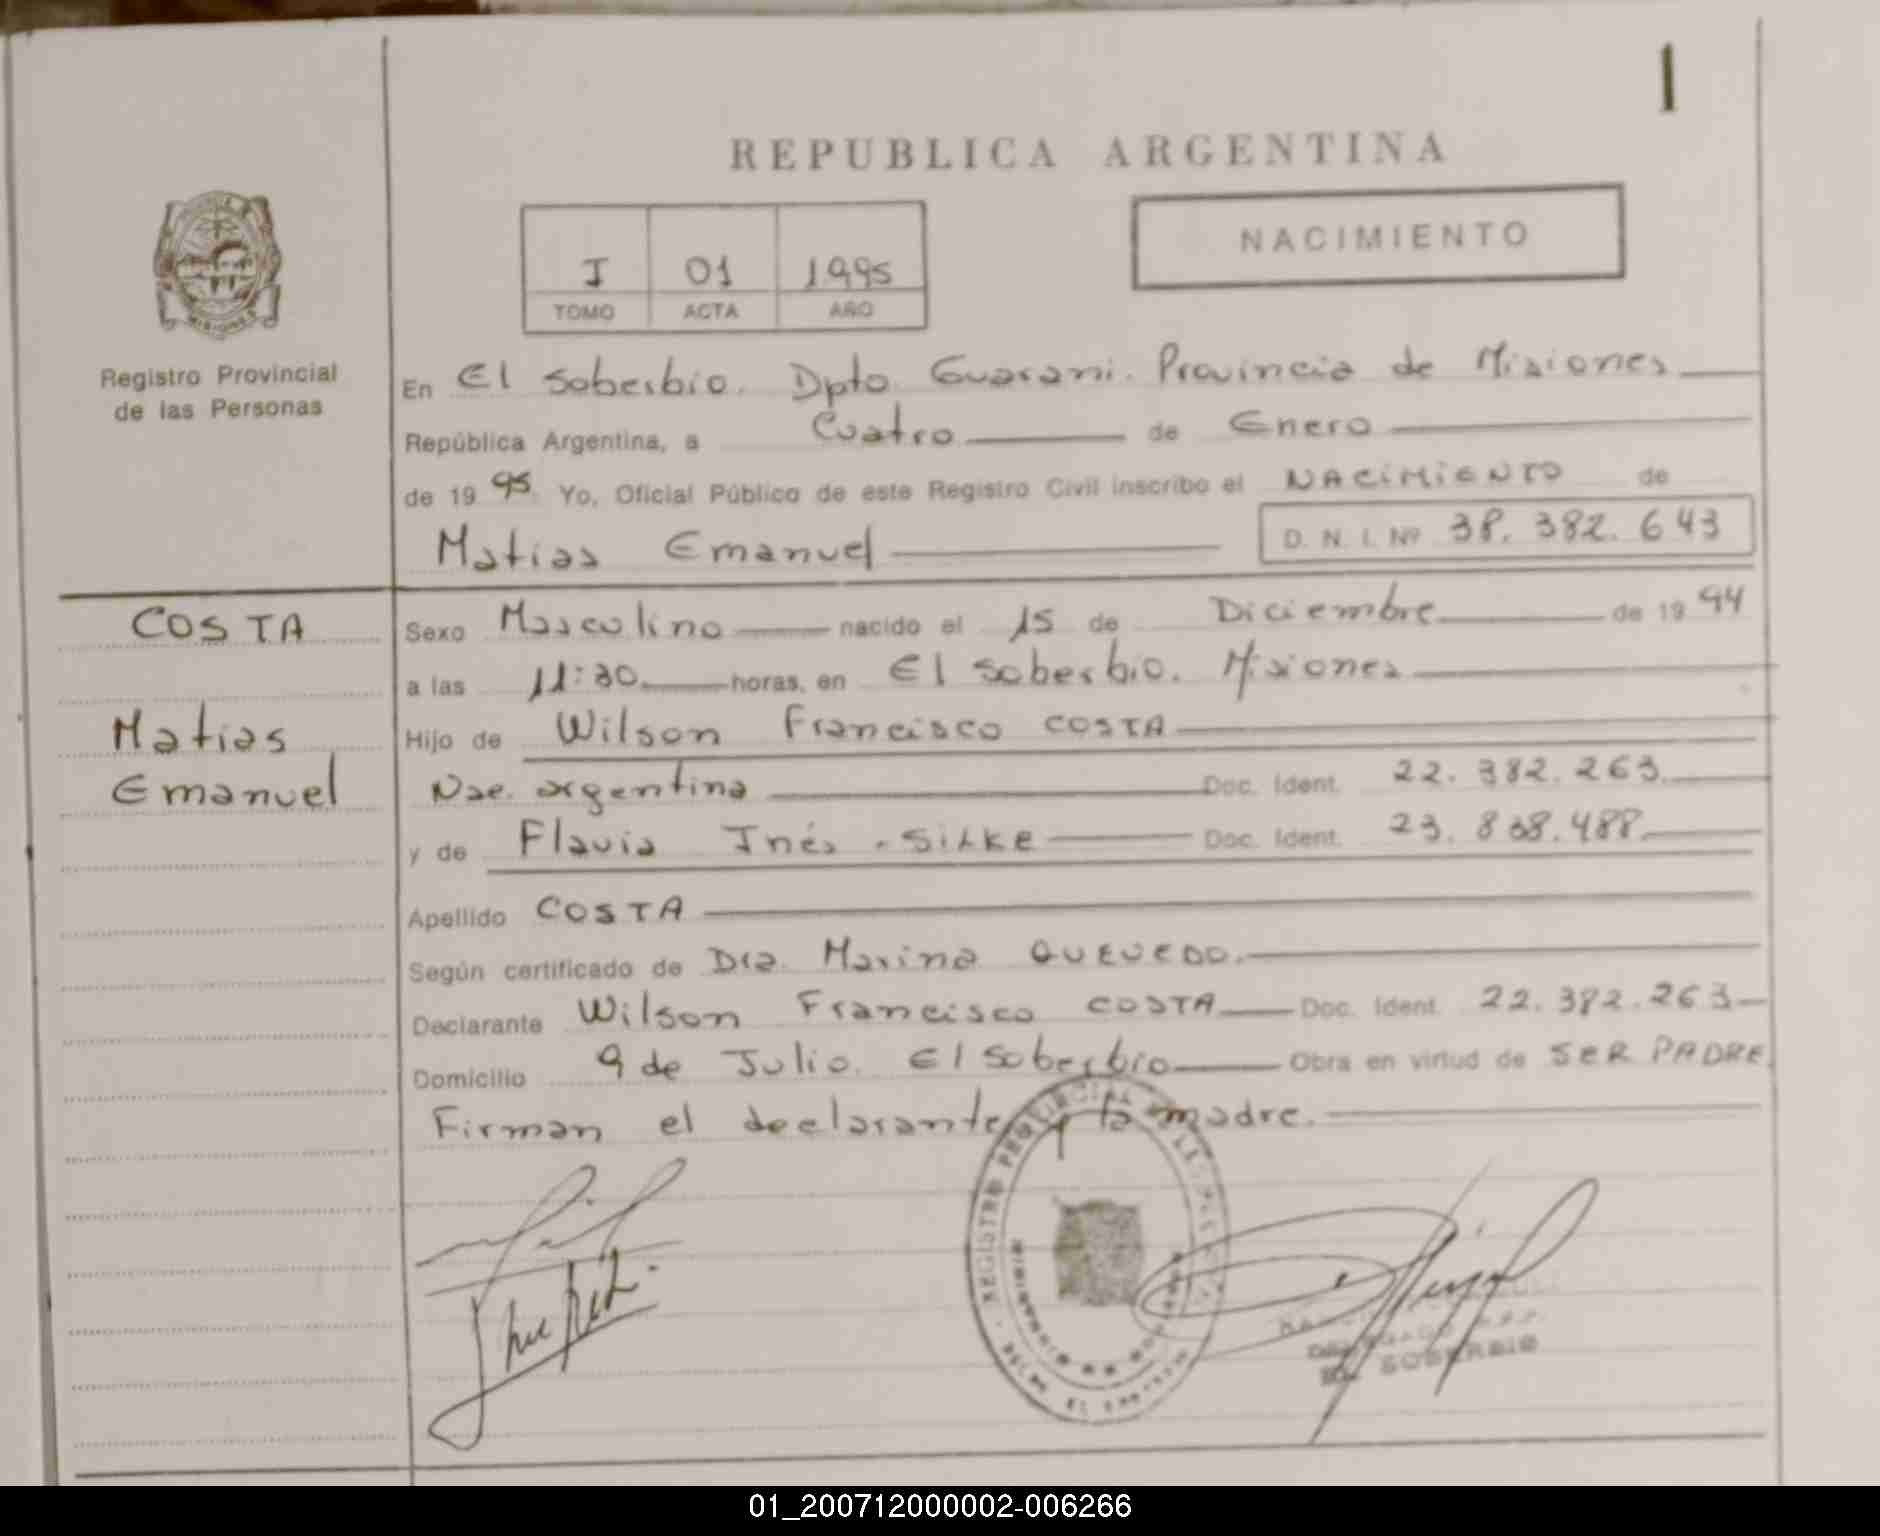 1
REPUBLICA ARGENTINA
NACIMIENTO
I 01 1995
TOMO ACTA AÑO
MISIONES
Registro Provincial
de las Personas
En El Soberbio. Dpto. Guarani. Provincia de Misiones
República Argentina, a Cuatro de Enero
de 19 95. Yo, Oficial Público de este Registro Civil inscribo el NACIMIENTO de
Matias Emanuel D. N. I. Nº 38. 382. 643
COSTA
Matias
Emanuel
Sexo Masculino nacido el 15 de Diciembre de 19 94
a las 11:30 horas, en El Soberbio. Misiones
Hijo de Wilson Francisco COSTA
Nac. argentina Doc. Ident. 22. 382. 263.
y de Flavia Inés SILKE Doc. Ident. 23. 838. 488
Apellido COSTA
Según certificado de Dra. Marina QUEVEDO.
Declarante Wilson Francisco COSTA Doc. Ident. 22. 382. 263
Domicilio 9 de Julio. El Soberbio Obra en virtud de SER PADRE
Firman el declarante y la madre.
REGISTRO PROVINCIAL DE LAS PERSONAS
SOBERBIO
01_200712000002-006266